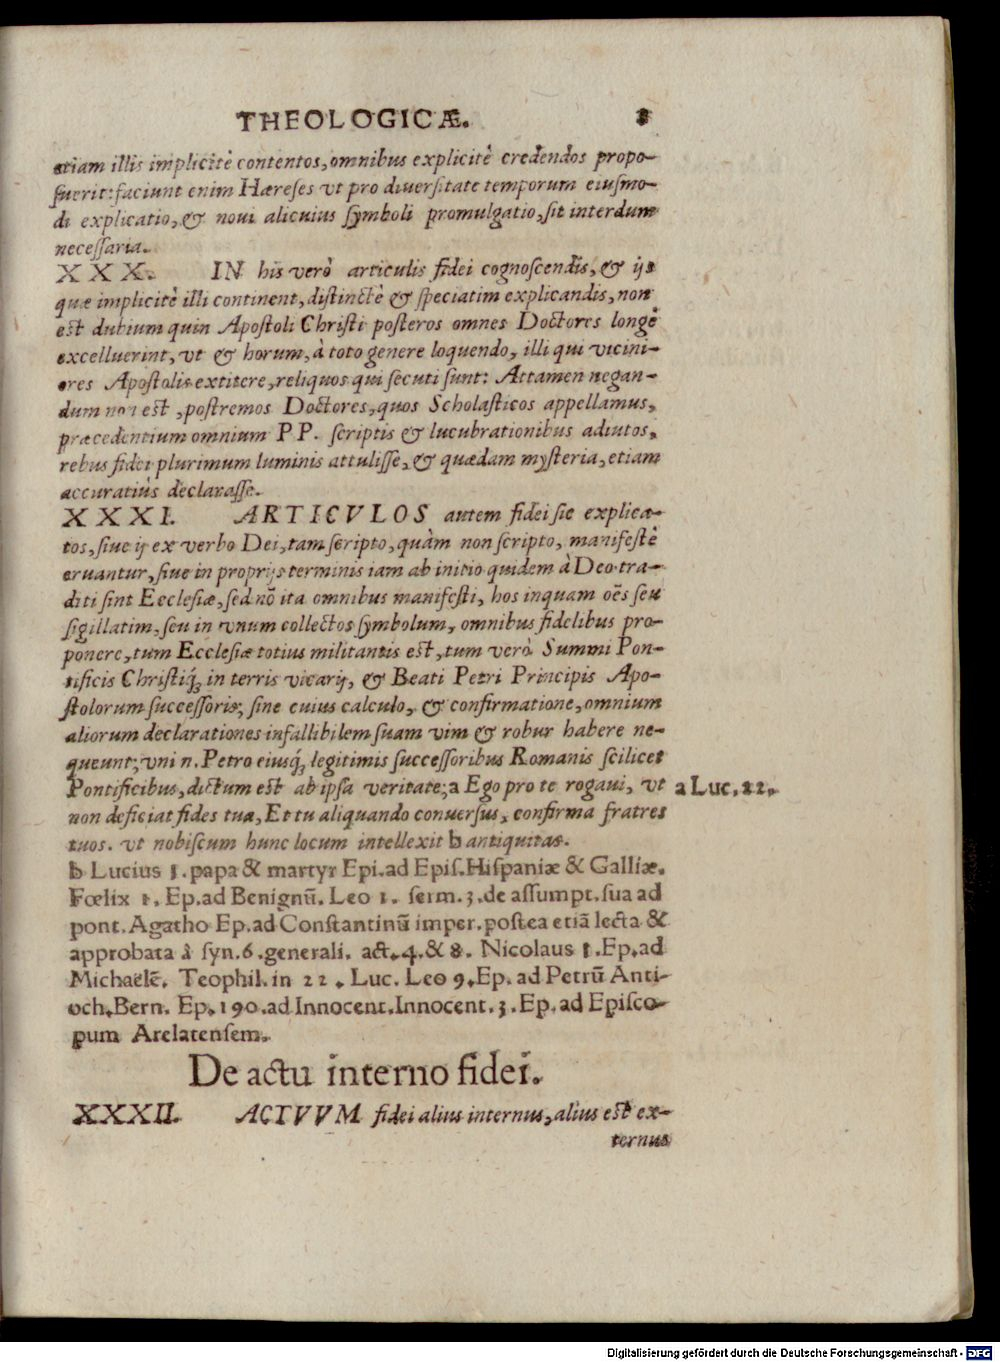 THEOLOGICÆ. 8
etiam illis implicitè contentos, omnibus explicitè credendos propo-
suerit: faciunt enim Hæreses vt pro diuersitate temporum eiusmo-
di explicatio, & noui alicuius symboli promulgatio, sit interdum
necessaria.
XXX. IN his verò articulis fidei cognoscendis, & ijs
quæ implicitè illi continent, distinctè & speciatim explicandis, non
est dubium quin Apostoli Christi posteros omnes Doctores longè
excelluerint, vt & horum, à toto genere loquendo, illi qui vicini-
ores Apostolis extitere, reliquos qui secuti sunt: Attamen negan-
dum non est, postremos Doctores, quos Scholasticos appellamus,
præcedentium omnium PP. scriptis & lucubrationibus adiutos,
rebus fidei plurimum luminis attulisse, & quædam mysteria, etiam
accuratiùs declarasse.
XXXI. ARTICVLOS autem fidei sic explica-
tos, siue ij ex verbo Dei, tam scripto, quàm non scripto, manifestè
eruantur, siue in proprijs terminis iam ab initio quidem à Deo tra-
diti sint Ecclesiæ, sed nō ita omnibus manifesti, hos inquam oēs seu
sigillatim, seu in vnum collectos symbolum, omnibus fidelibus pro-
ponere, tum Ecclesiæ totius militantis est, tum verò Summi Pon-
tificis Christiq́; in terris vicarij, & Beati Petri Principis Apo-
stolorum successoris; sine cuius calculo, & confirmatione, omnium
aliorum declarationes infallibilem suam vim & robur habere ne-
queunt; vni n. Petro eiusq́; legitimis successoribus Romanis scilicet
Pontificibus, dictum est ab ipsa veritate; a Ego pro te rogaui, vt a Luc. 22.
non deficiat fides tua, Et tu aliquando conuersus, confirma fratres
tuos. vt nobiscum hunc locum intellexit b antiquitas.
b Lucius 1. papa & martyr Epi. ad Epis. Hispaniæ & Galliæ.
Fœlix 1. Ep. ad Benignū. Leo 1. serm. 3. de assumpt. sua ad
pont. Agatho Ep. ad Constantinū imper. postea etiā lecta &
approbata à syn. 6. generali. act. 4. & 8. Nicolaus 1. Ep. ad
Michaëlē. Teophil. in 22. Luc. Leo 9. Ep. ad Petrū Anti-
och. Bern. Ep. 190. ad Innocent. Innocent. 3. Ep. ad Episco-
pum Arelatensem.
De actu interno fidei.
XXXII. ACTVVM fidei alius internus, alius est ex-
ternus
Digitalisierung gefördert durch die Deutsche Forschungsgemeinschaft - DFG